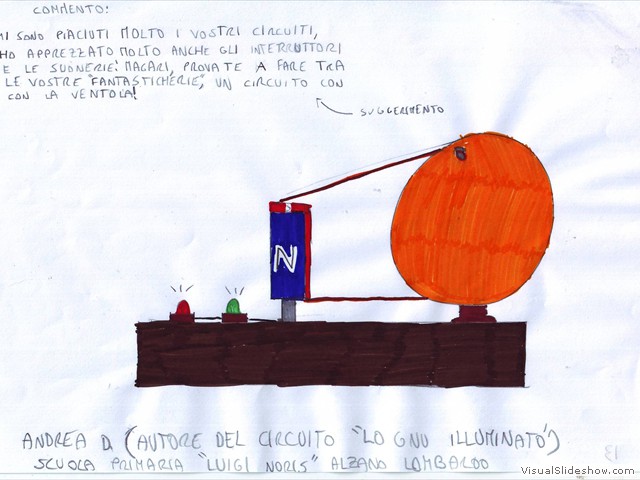 COMMENTO:
MI SONO PIACIUTI MOLTO I VOSTRI CIRCUITI,
HO APPREZZATO MOLTO ANCHE GLI INTERRUTTORI
E LE SUONERIE! MAGARI, PROVATE A FARE TRA
LE VOSTRE "FANTASTICHERIE", UN CIRCUITO CON
CON LA VENTOLA!
SUGGERIMENTO
N
ANDREA D. (AUTORE DEL CIRCUITO "LO GNU ILLUMINATO")
SCUOLA PRIMARIA "LUIGI NORIS" ALZANO LOMBARDO
VisualSlideshow.com